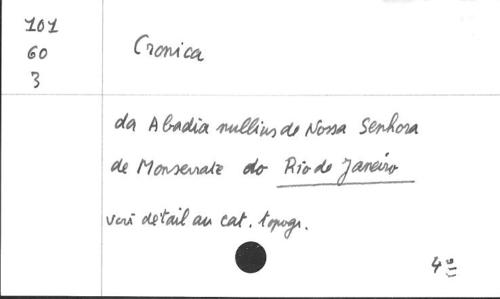 101
60
3
Cronica
da Abadia nullius de Nossa Senhora
de Monserrate do Rio de Janeiro
détail au cat. topogr.
4º